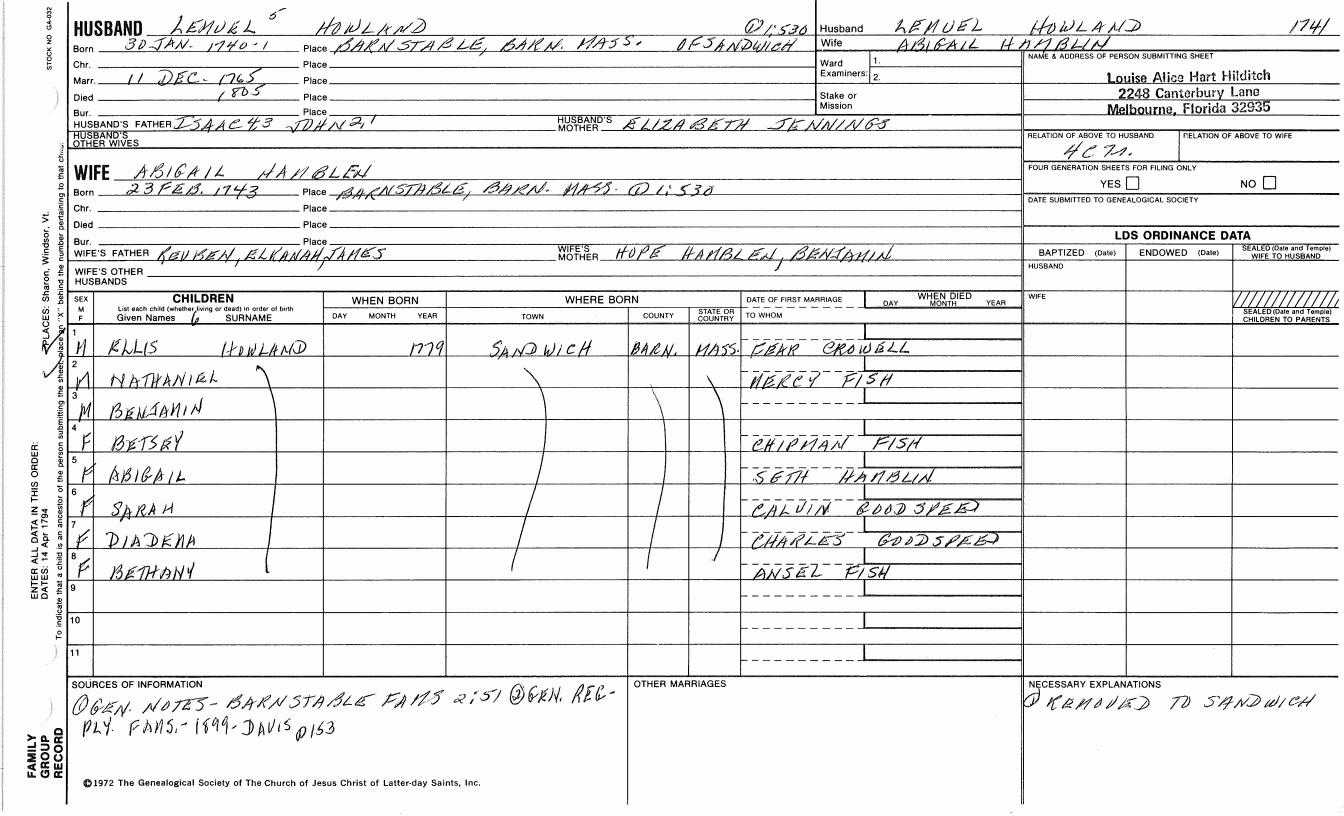 STOCK NO GA-032
HUSBAND LEMUEL 5 HOWLAND ① 1:530
Born 30 JAN. 1740-1 Place BARNSTABLE, BARN. MASS. OF SANDWICH
Chr. Place
Marr. 11 DEC. 1765 Place
Died 1805 Place
Bur. Place
HUSBAND'S FATHER ISAAC 4,3 JOHN 2,1 HUSBAND'S MOTHER ELIZABETH JENNINGS
HUSBAND'S OTHER WIVES
Husband LEMUEL HOWLAND 1741
Wife ABIGAIL HAMBLIN
Ward Examiners: 1. 2.
Stake or Mission
NAME & ADDRESS OF PERSON SUBMITTING SHEET
Louise Alice Hart Hilditch
2248 Canterbury Lane
Melbourne, Florida 32935
RELATION OF ABOVE TO HUSBAND RELATION OF ABOVE TO WIFE
FOUR GENERATION SHEETS FOR FILING ONLY
YES NO
DATE SUBMITTED TO GENEALOGICAL SOCIETY
WIFE ABIGAIL HAMBLEN
Born 23 FEB. 1743 Place BARNSTABLE, BARN. MASS. ① 1:530
Chr. Place
Died Place
Bur. Place
WIFE'S FATHER REUBEN, ELKANAH, JAMES WIFE'S MOTHER HOPE HAMBLEN, BENJAMIN
WIFE'S OTHER HUSBANDS
LDS ORDINANCE DATA
BAPTIZED (Date) ENDOWED (Date) SEALED (Date and Temple) WIFE TO HUSBAND
HUSBAND
WIFE
SEALED (Date and Temple) CHILDREN TO PARENTS
SEX M F CHILDREN WHEN BORN WHERE BORN DATE OF FIRST MARRIAGE WHEN DIED
List each child (whether living or dead) in order of birth
Given Names 6 SURNAME DAY MONTH YEAR TOWN COUNTY STATE OR COUNTRY TO WHOM DAY MONTH YEAR
1 M ELLIS HOWLAND 1779 SANDWICH BARN. MASS. FEAR CROWELL
2 M NATHANIEL MERCY FISH
3 M BENJAMIN
4 F BETSEY CHIPMAN FISH
5 F ABIGAIL SETH HAMBLIN
6 F SARAH CALVIN GOODSPEED
7 F DIADENA CHARLES GOODSPEED
8 F BETHANY ANSEL FISH
9
10
11
SOURCES OF INFORMATION
① GEN. NOTES - BARNSTABLE FAMS 2:51 ② GEN. REG-
PLY. FAMS. - 1899 - DAVIS p153
OTHER MARRIAGES
NECESSARY EXPLANATIONS
① REMOVED TO SANDWICH
©1972 The Genealogical Society of The Church of Jesus Christ of Latter-day Saints, Inc.
ENTER ALL DATA IN THIS ORDER:
DATES: 14 Apr 1794
PLACES: Sharon, Windsor, Vt.
To indicate that a child is an ancestor of the person submitting the sheet, place an "X" behind the number pertaining to that child.
FAMILY GROUP RECORD